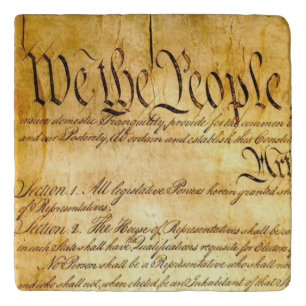 We the People
insure domestic Tranquility, provide for the common
and our Posterity, do ordain and establish this Constit
Art
Section 1. All legislative Powers herein granted sha
of Representatives.
Section 2. The House of Representatives shall be
in each State shall have the Qualifications requisite for Elector
No Person shall be a Representative who shall not
and who shall not, when elected, be an Inhabitant of that